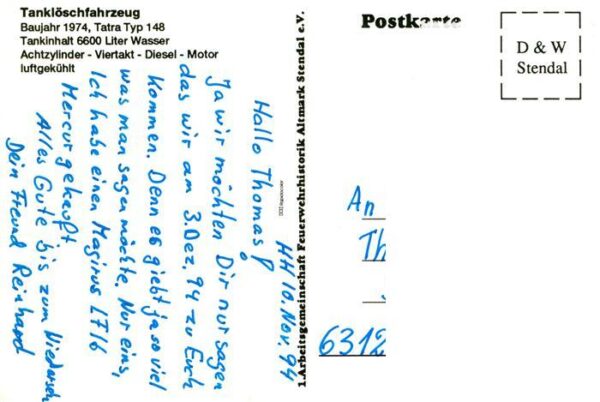 Tanklöschfahrzeug
Baujahr 1974, Tatra Typ 148
Tankinhalt 6600 Liter Wasser
Achtzylinder - Viertakt - Diesel - Motor
luftgekühlt
HH 10. Nov. 94
Hallo Thomas!
Ja wir möchten Dir nur sagen
das wir am 3. Dez. 94 zu Euch
kommen. Denn es giebt ja so viel
was man sagen möchte. Nur eins,
Ich habe einen Magirus L7/6
Mercur gekauft
Alles Gute bis zum Wiedersehn
Dein Freund Reinhard
1.Arbeitsgemeinschaft Feuerwehrhistorik Altmark Stendal e.V.
Postkarte
D & W
Stendal
An
Th
6312